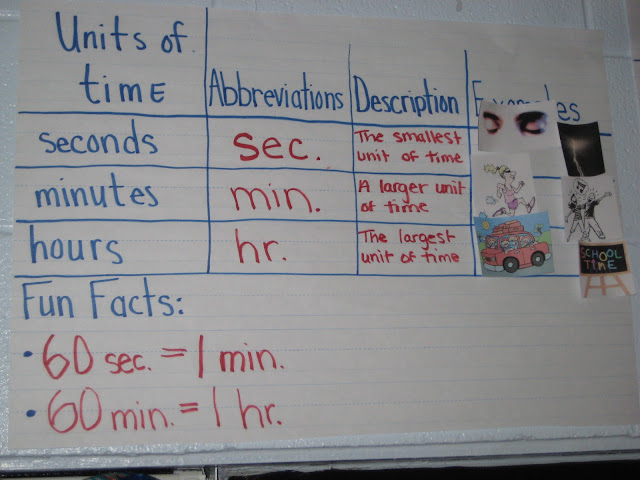 Units of time Abbreviations Description Examples
seconds sec. The smallest unit of time
minutes min. A larger unit of time
hours hr. The largest unit of time
SCHOOL TIME
Fun Facts:
• 60 sec. = 1 min.
• 60 min. = 1 hr.